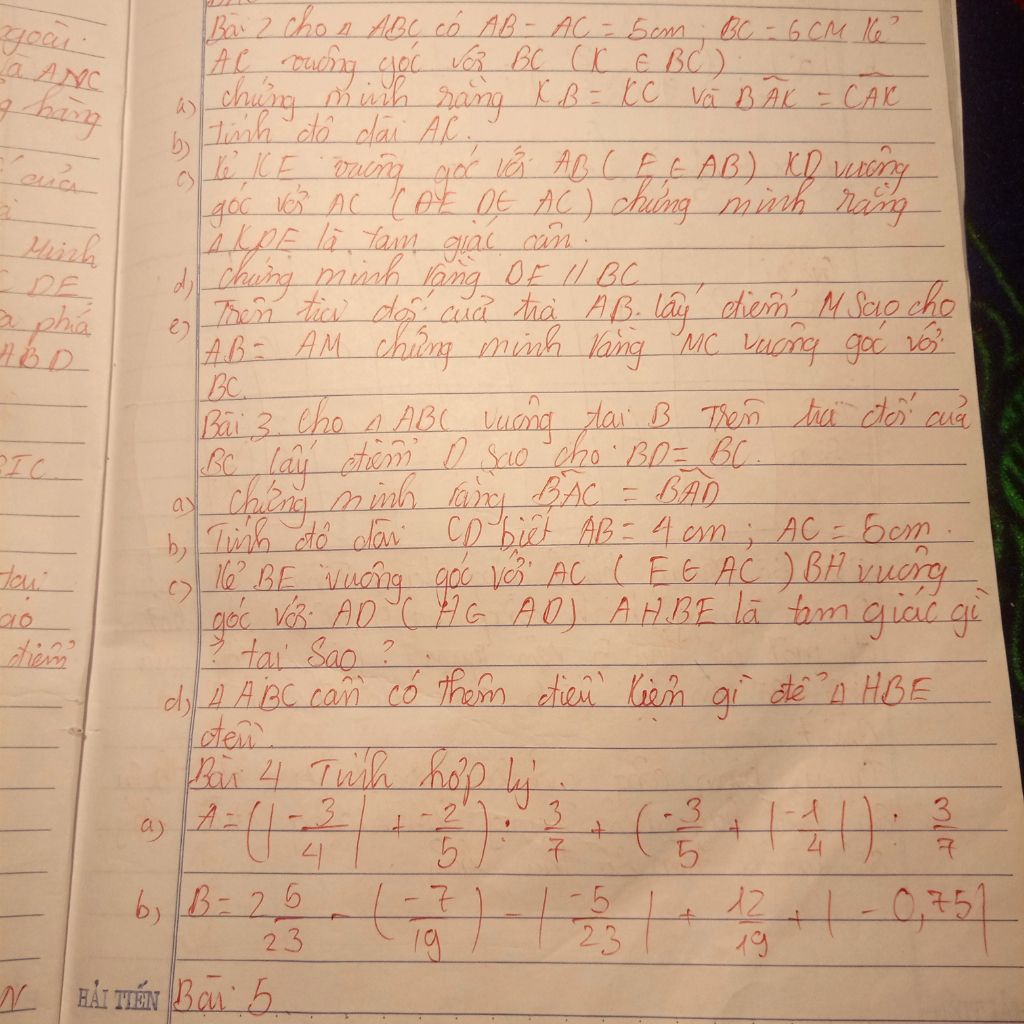 ngoài.
là ANC
g hàng
của
Minh
C DE
a phía
ABD
BIC.
tại
ao
điểm
N
Bài 2 Cho Δ ABC có AB = AC = 5cm; BC = 6CM Kẻ
AK vuông góc với BC (K ∈ BC)
a) chứng minh rằng KB = KC và BÂK = CÂK
b) Tính độ dài AK.
c) Kẻ KE vuông góc với AB (E ∈ AB) KD vuông
góc với AC (AE D∈ AC) chứng minh rằng
Δ KDE là tam giác cân.
d) chứng minh rằng DE // BC
e) Trên tia đối của tia AB lấy điểm M Sao cho
AB = AM chứng minh rằng MC vuông góc với
BC.
Bài 3. Cho Δ ABC vuông tại B Trên tia đối của
BC lấy điểm D sao cho BD = BC.
a) chứng minh rằng BÂC = BÂD
b, Tính độ dài CD biết AB = 4cm; AC = 5cm.
c) Kẻ BE vuông góc với AC (E ∈ AC) BH vuông
góc với AD (H∈ AD) Δ HBE là tam giác gì
? tại Sao?.
d) Δ ABC cần có thêm điều kiện gì để Δ HBE
đều.
Bài 4 Tính hợp lý.
a) A = (|-3/4| + -2/5) : 3/7 + (-3/5 + |-1/4|) : 3/7
b) B = 2 5/23 - (-7/19) - |-5/23| + 12/19 + |-0,75|
HẢI TIẾN Bài 5